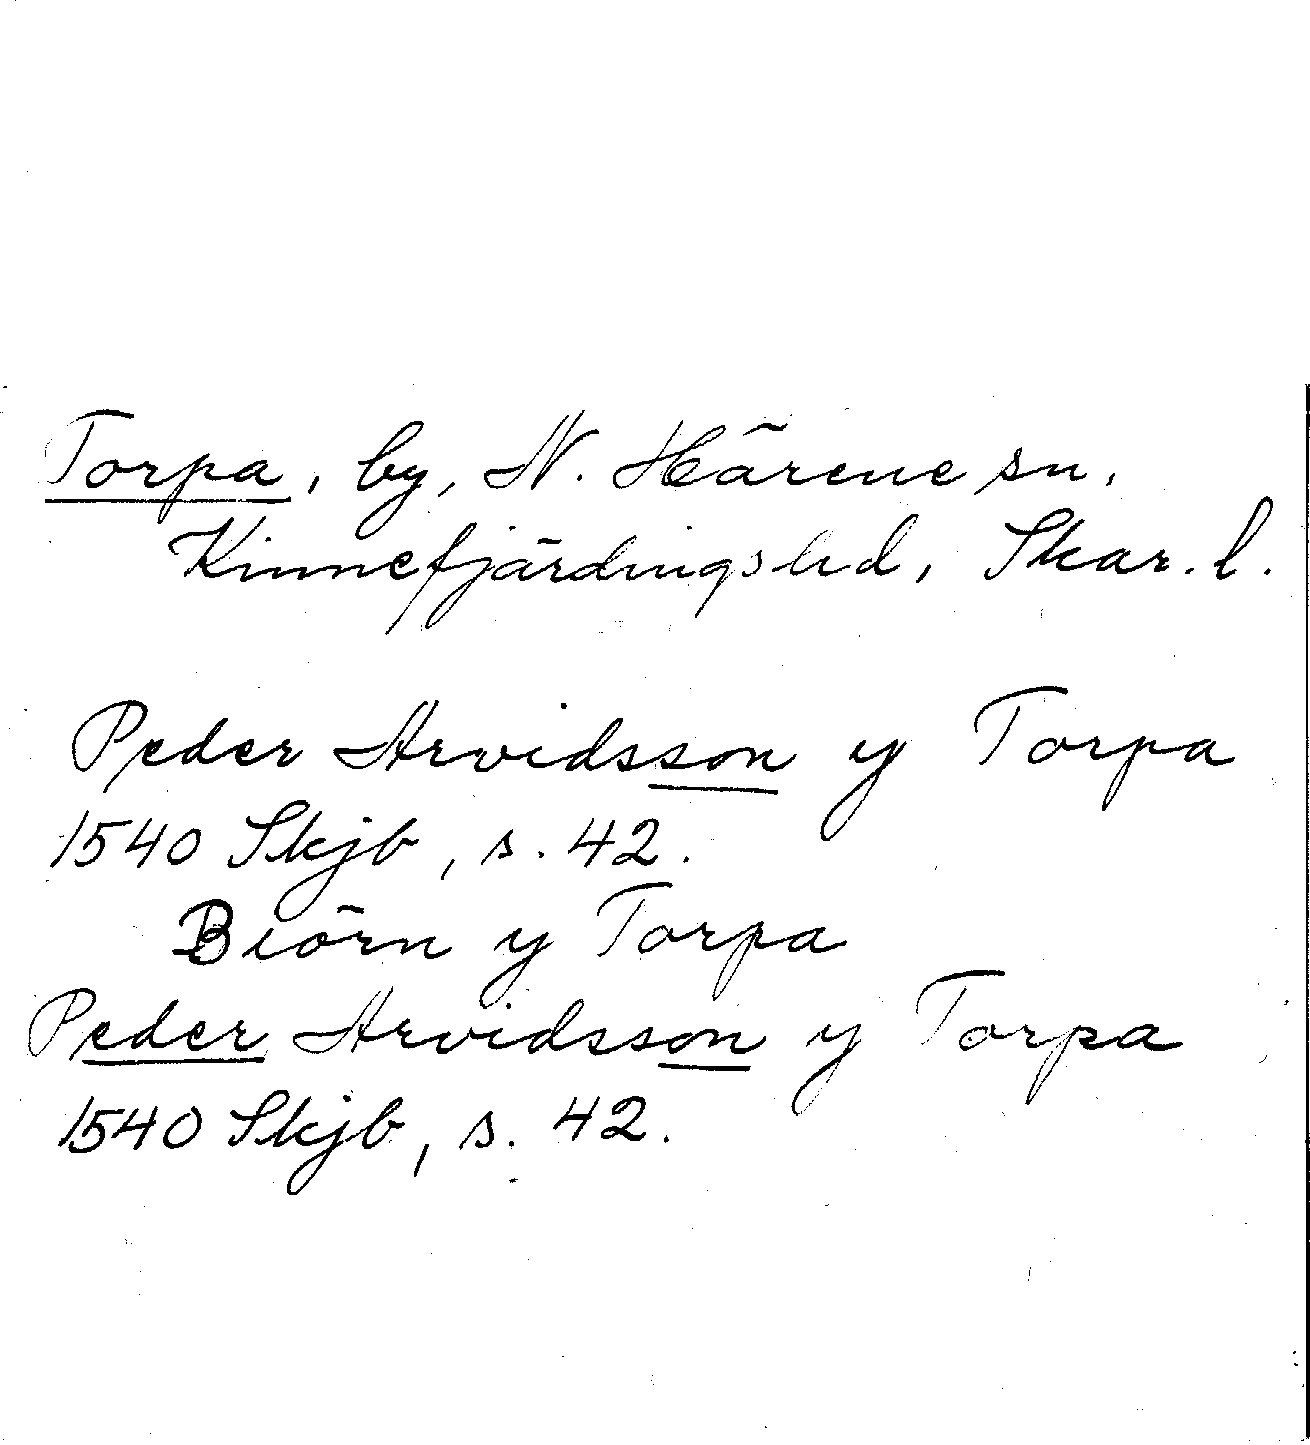 Torpa, by, N. Härene sn,
Kinnefjärdingshd, Skar. l.
Peder Arvidsson y Torpa
1540 Skjb, s. 42.
Biörn y Torpa
Peder Arvidsson y Torpa
1540 Skjb, s. 42.